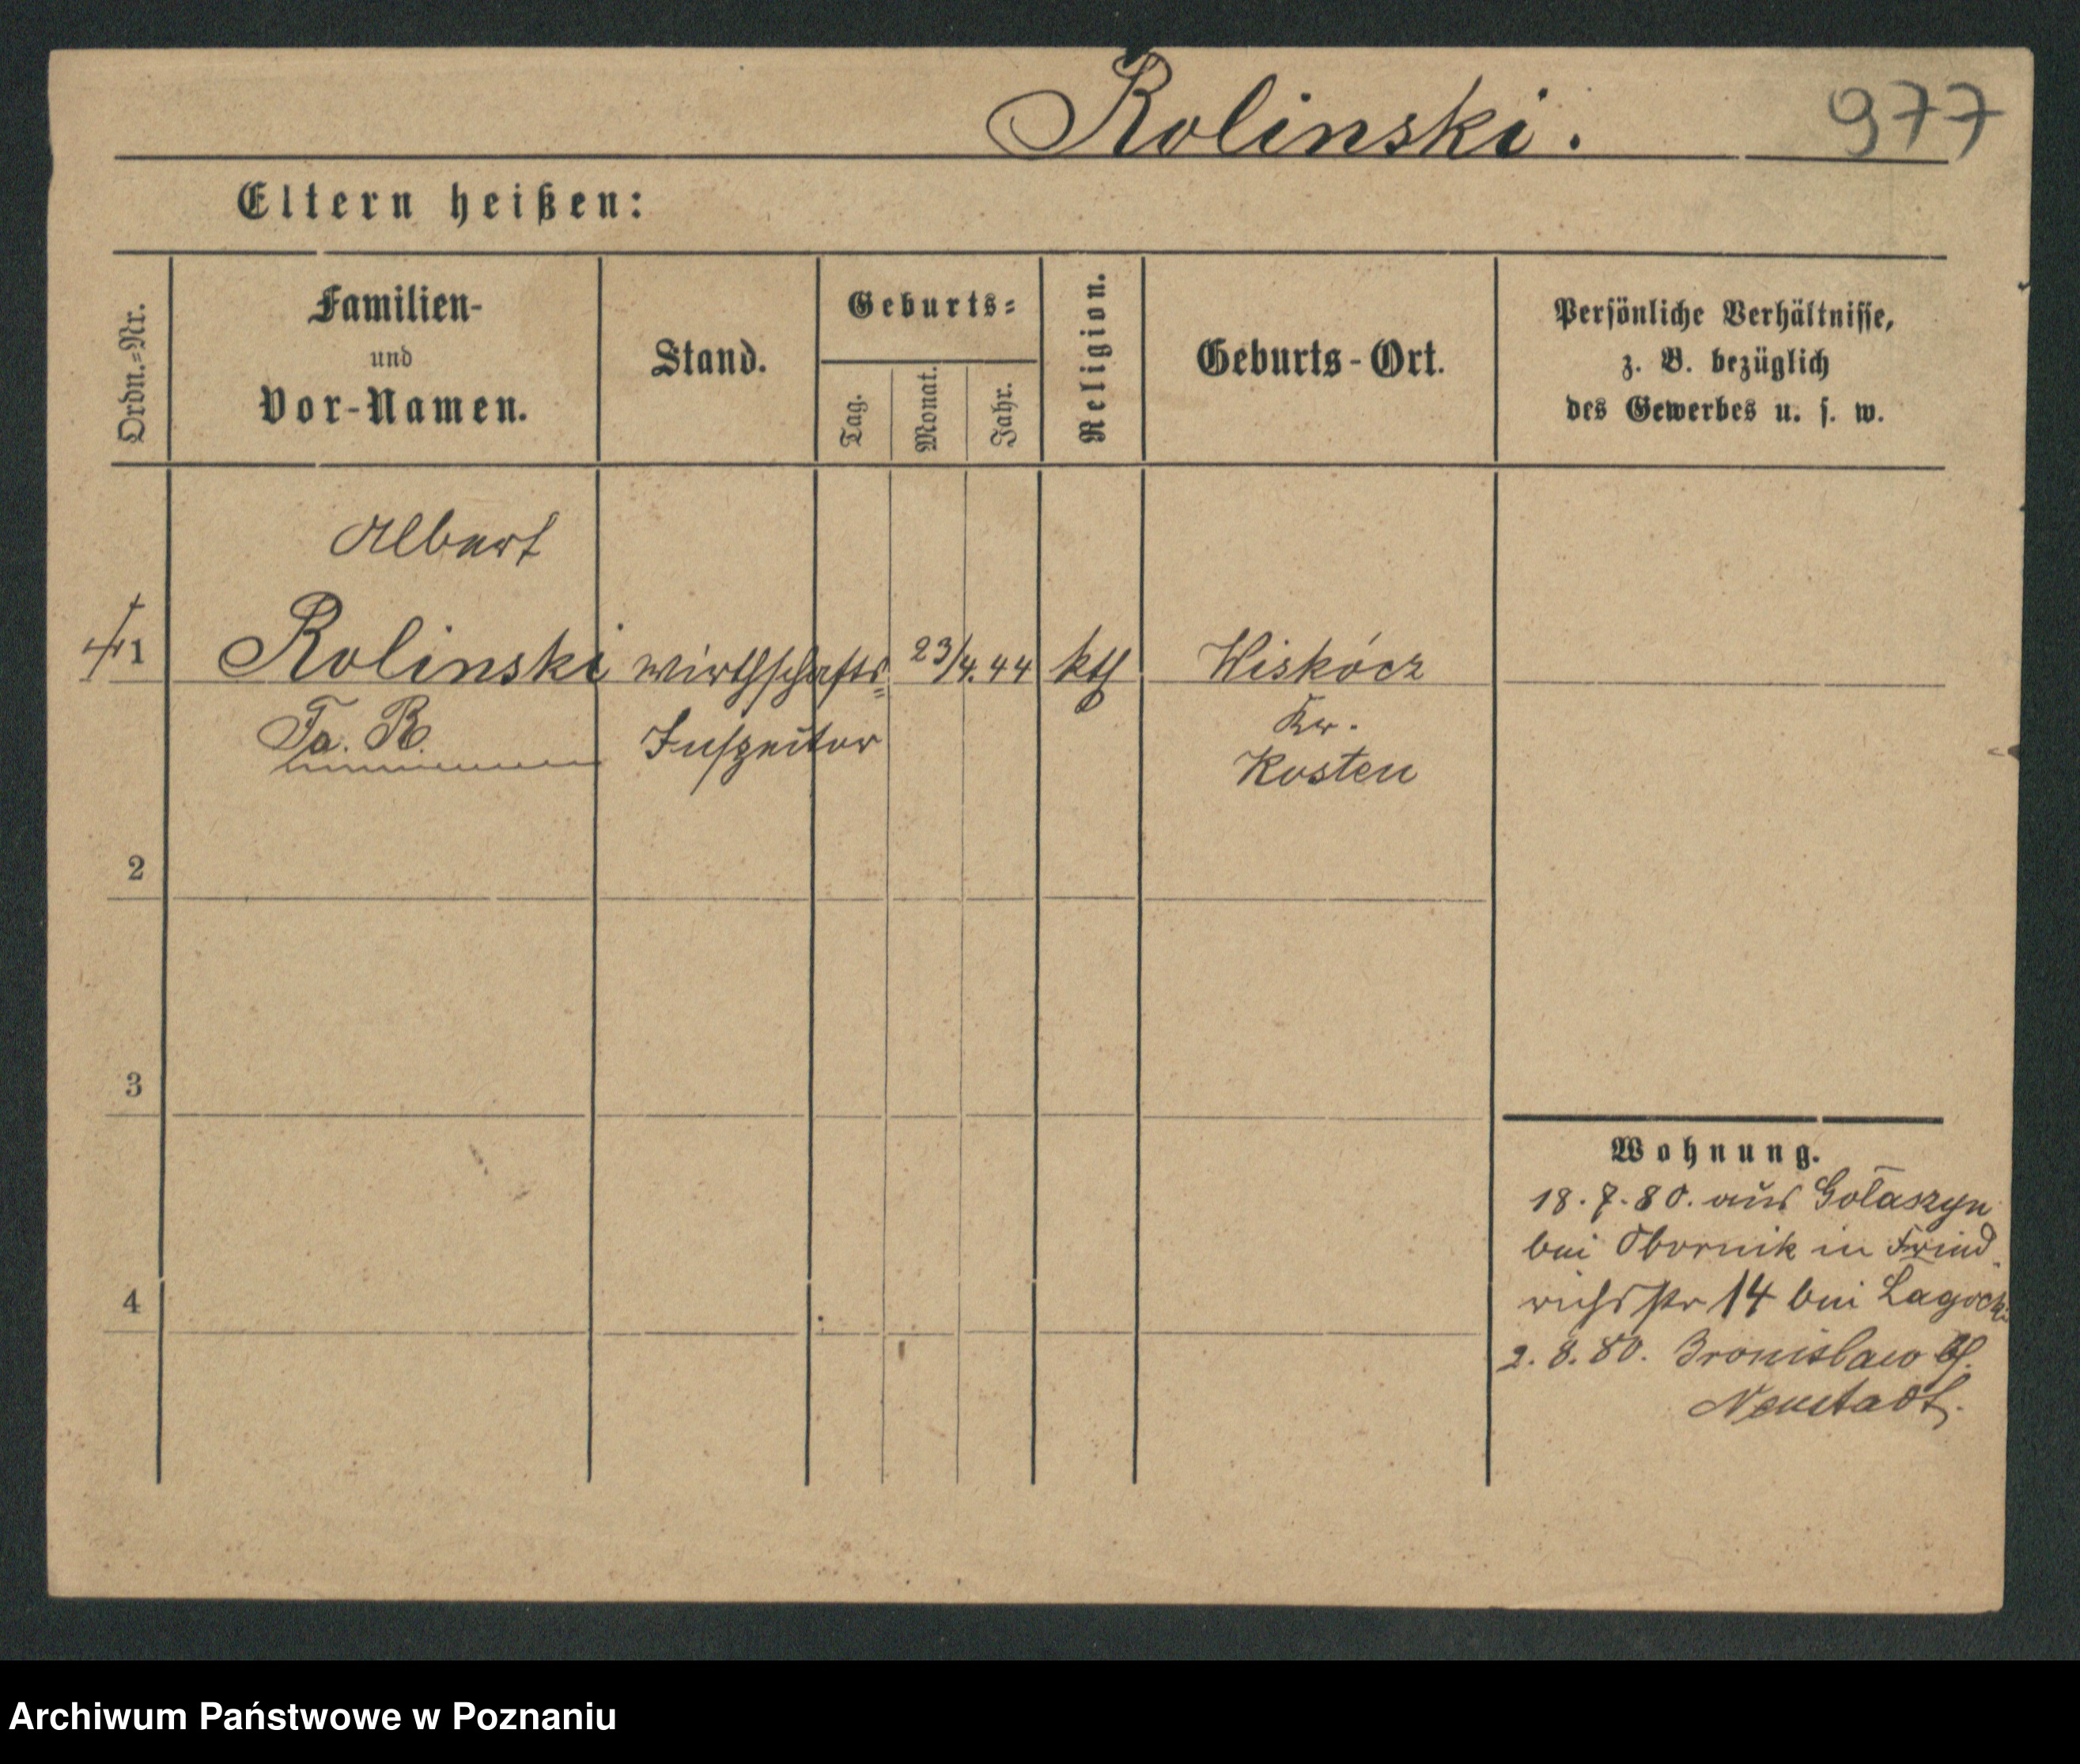 Rolinski. 977
Eltern heißen:
Ordn.=Nr.
Familien-
und
Vor-Namen.
Stand.
Geburts=
Tag.
Monat.
Jahr.
Religion.
Geburts-Ort.
Persönliche Verhältnisse,
z. B. bezüglich
des Gewerbes u. s. w.
Albert
1 Rolinski wirthschafts= 23/4.44 kth Wiskócz
Fa. R. Inspector Kr.
Kosten
2
3
4
Wohnung.
18.7.80. aus Gołaszyn
bei Obornik in Fried
richsstr 14 bei Łagocki
2.8.80. Bronislaw
Neustadt.